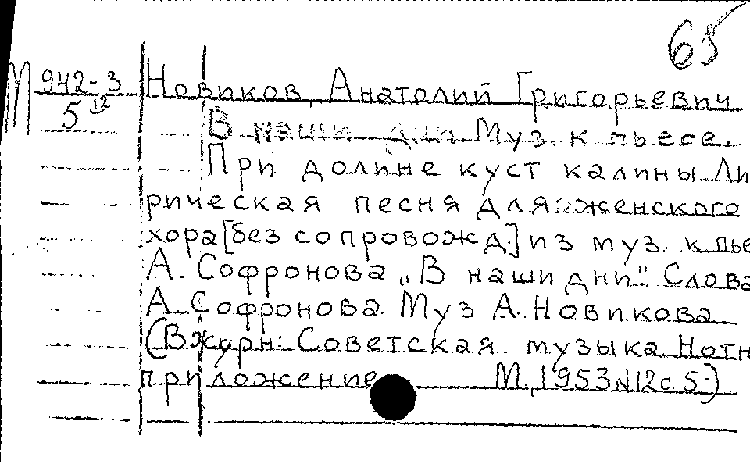 65
М 942-3 Новиков, Анатолий Григорьевич
5 12 В наши дни Муз. к пьесе.
При долине куст калины Ли
рическая песня для женского
хора [без сопровожд.] из муз. к пье
А. Софронова „В наши дни". Слова
А. Софронова Муз А. Новикова
(В журн: Советская музыка Нотн
приложение М., 1953 N 12 с 5.)